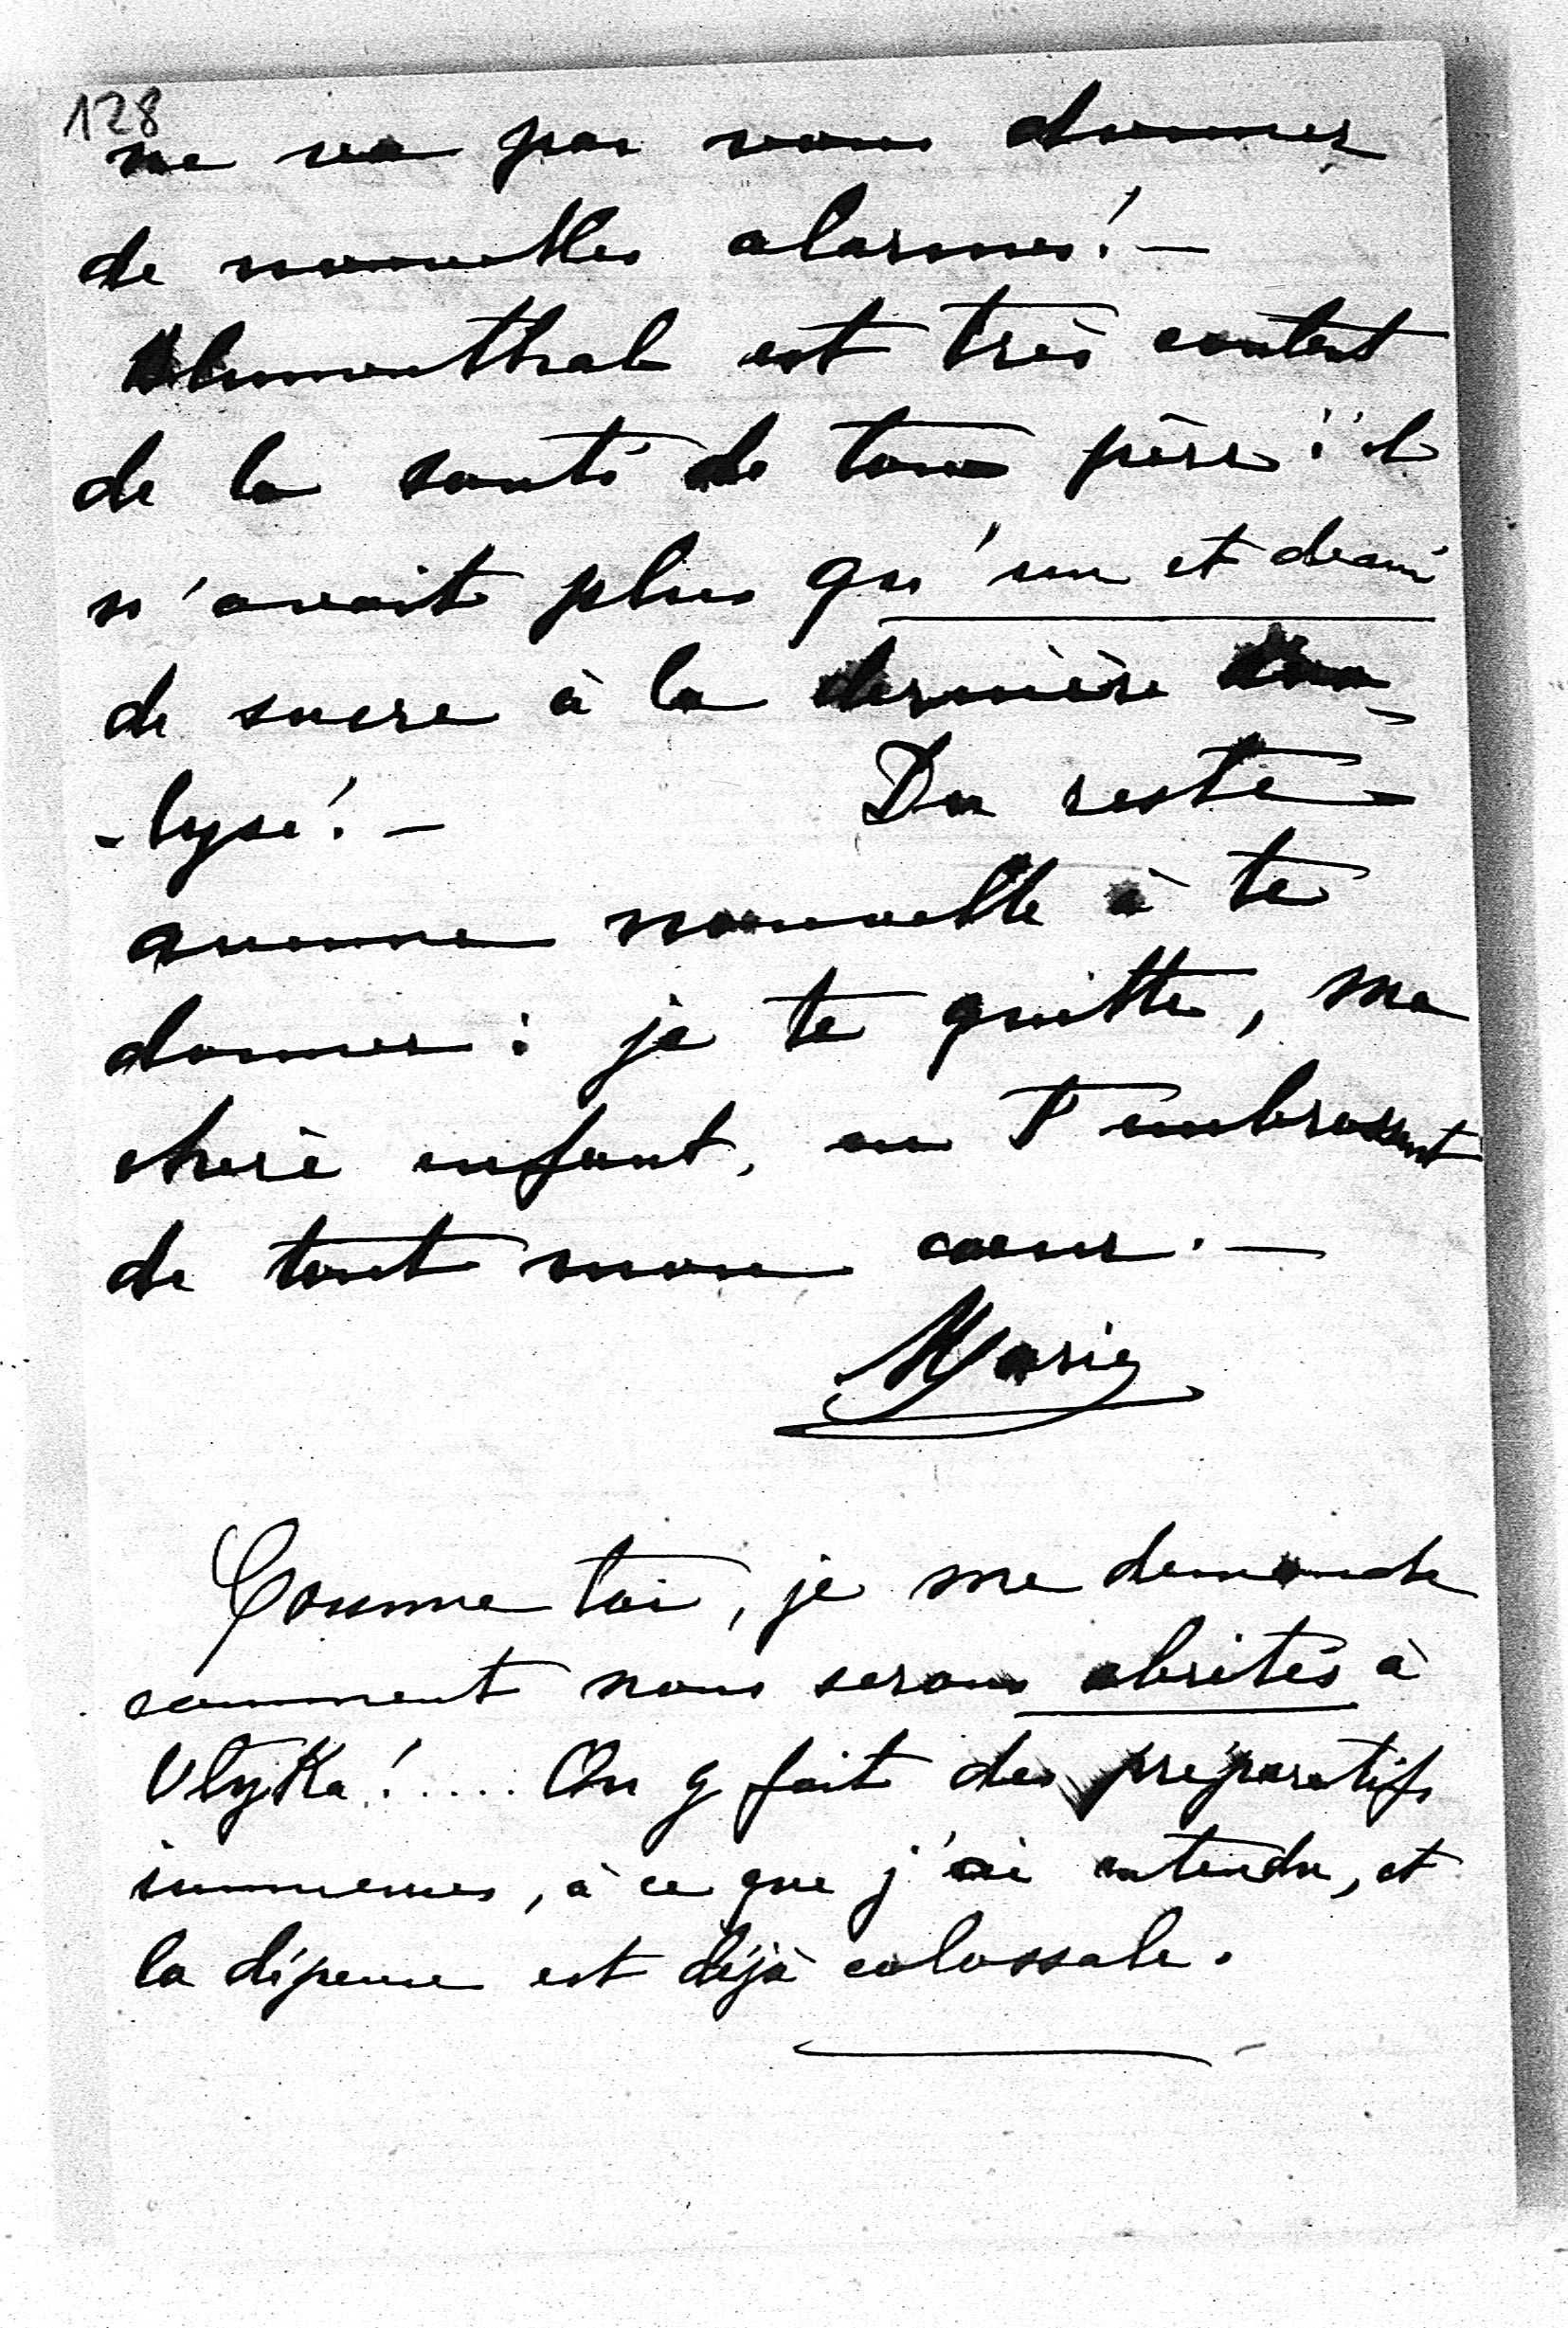 128
ne va pas vous donner
de nouvelles alarmes! —
Blumenthal est très content
de la santé de ton père: il
n'avait plus qu'un et demi
de sucre à la dernière ana-
-lyse! — Du reste
aucune nouvelle à te
donner: je te quitte, ma
chère enfant, en t'embrassant
de tout mon coeur. —
Marie
Comme toi, je me demande
comment nous serons abrités à
Olyka!..... On y fait des préparatifs
immenses, à ce que j'ai entendu, et
la dépense est déjà colossale.